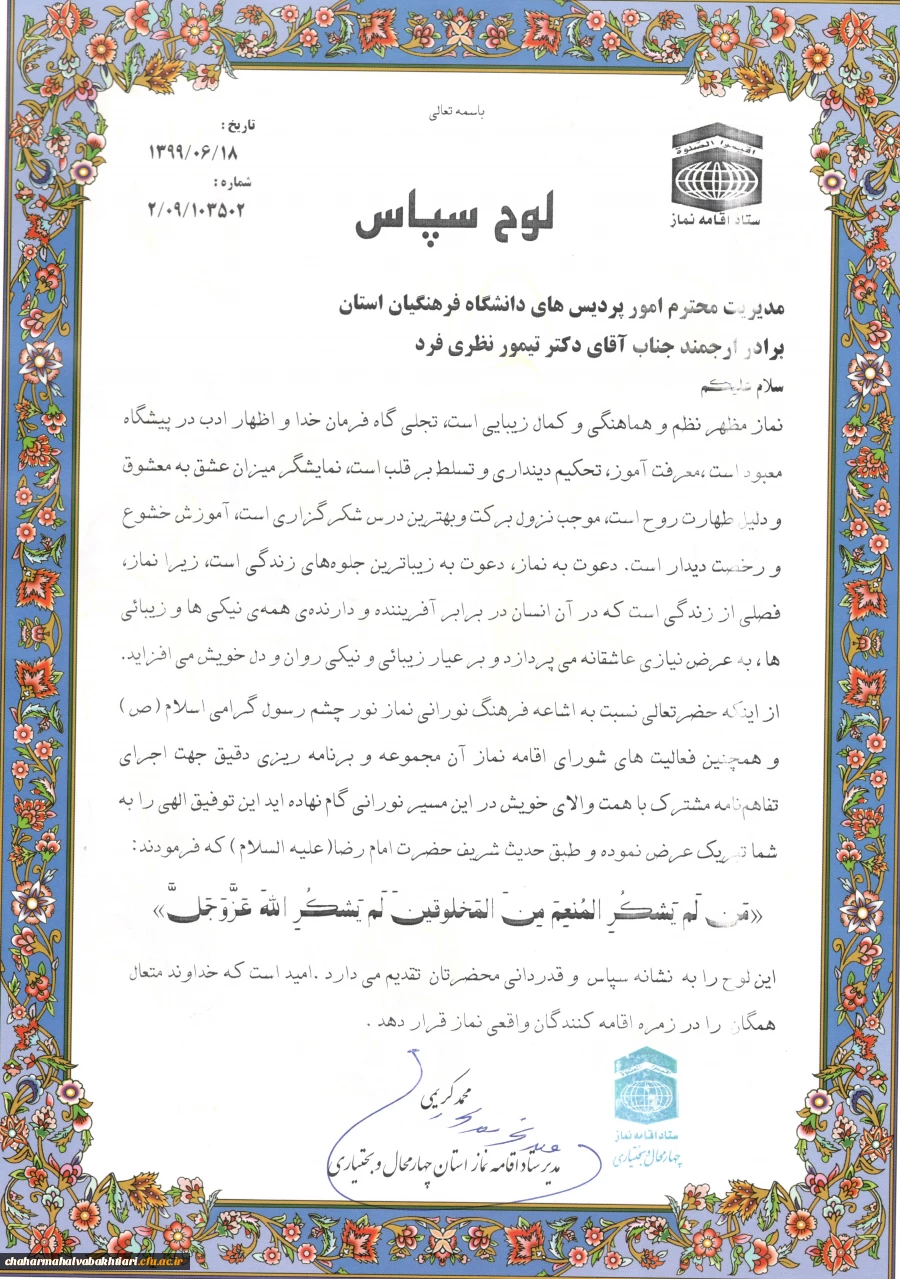 باسمه تعالی
تاریخ :
۱۳۹۹/۰۶/۱۸
شماره :
۲/۰۹/۱۰۳۵۰۲
اقیموا الصلوة
ستاد اقامه نماز
لوح سپاس
مدیریت محترم امور پردیس های دانشگاه فرهنگیان استان
برادر ارجمند جناب آقای دکتر تیمور نظری فرد
سلام علیکم
نماز مظهر نظم و هماهنگی و کمال زیبایی است، تجلی گاه فرمان خدا و اظهار ادب در پیشگاه
معبود است ،معرفت آموز، تحکیم دینداری و تسلط بر قلب است، نمایشگر میزان عشق به معشوق
و دلیل طهارت روح است، موجب نزول برکت وبهترین درس شکرگزاری است، آموزش خشوع
و رخصت دیدار است. دعوت به نماز، دعوت به زیباترین جلوه‌های زندگی است، زیرا نماز،
فصلی از زندگی است که در آن انسان در برابر آفریننده و دارنده‌ی همه‌ی نیکی ها و زیبائی
ها ، به عرض نیازی عاشقانه می پردازد و بر عیار زیبائی و نیکی روان و دل خویش می افزاید.
از اینکه حضرتعالی نسبت به اشاعه فرهنگ نورانی نماز نور چشم رسول گرامی اسلام (ص)
و همچنین فعالیت های شورای اقامه نماز آن مجموعه و برنامه ریزی دقیق جهت اجرای
تفاهم‌نامه مشترک با همت والای خویش در این مسیر نورانی گام نهاده اید این توفیق الهی را به
شما تبریک عرض نموده و طبق حدیث شریف حضرت امام رضا(علیه السلام) که فرمودند:
«مَن لَم یَشکُرِ المُنعِمَ مِنَ المَخلوقینَ لَم یَشکُرِ اللهَ عَزَّوَجَلَّ»
این لوح را به نشانه سپاس و قدردانی محضرتان تقدیم می دارد .امید است که خداوند متعال
همگان را در زمره اقامه کنندگان واقعی نماز قرار دهد .
محمد کریمی
مدیر ستاد اقامه نماز استان چهارمحال و بختیاری
ستاد اقامه نماز
چهارمحال و بختیاری
chaharmahalvabakhtiari.cfu.ac.ir